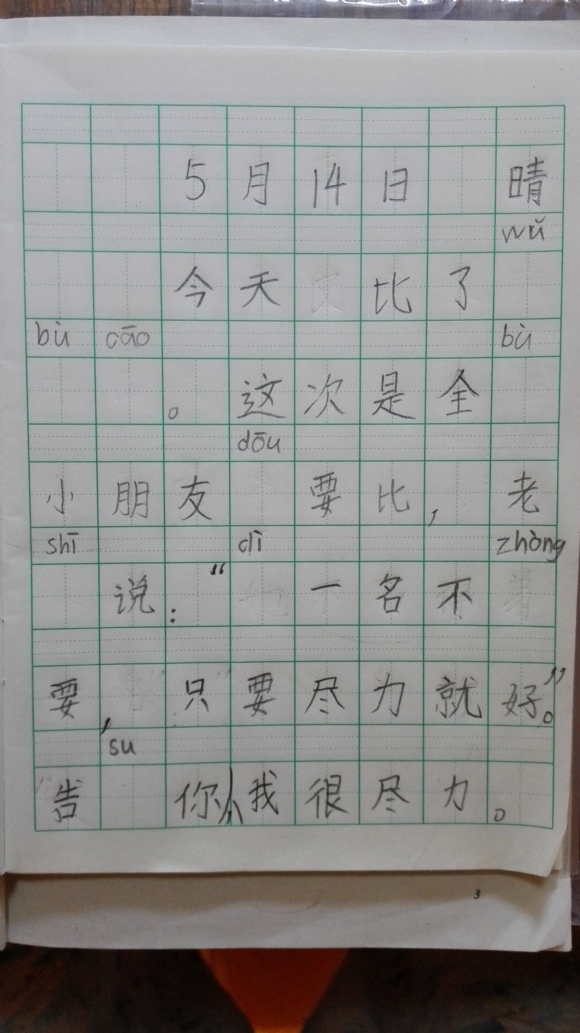 5月14日 晴
wǔ
今天 比了
bù cāo bù
。这次是全
dōu
小朋友 要比，老
shī dì zhòng
说：“ 一名不
要，只要尽力就好。”
su
告 你们我很尽力。
3